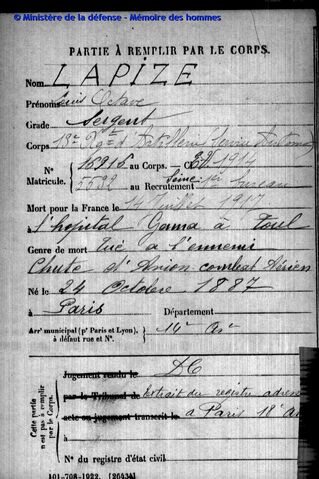 © Ministère de la défense - Mémoire des hommes
PARTIE À REMPLIR PAR LE CORPS.
Nom LAPIZE
Prénoms Octave
Grade Sergent
Corps 13e Rgt d'Artillerie
No 16916 au Corps. - Cl. 1914
Matricule. 5592 au Recrutement Seine 1er bureau
Mort pour la France le 14 Juillet 1917
à l'hopital Gama à Toul
Genre de mort Tué à l'ennemi
Chute d'Avion combat Aérien
Né le 24 Octobre 1887
à Paris Département
Arrt municipal (pr Paris et Lyon), à défaut rue et No. 14e Arr
Cette partie n'est pas à remplir par le Corps.
Jugement rendu le DC
par le Tribunal de Extrait du registre
acte ou jugement transcrit le à Paris 18e arr
à
No du registre d'état civil
101-708-1922. [26434]